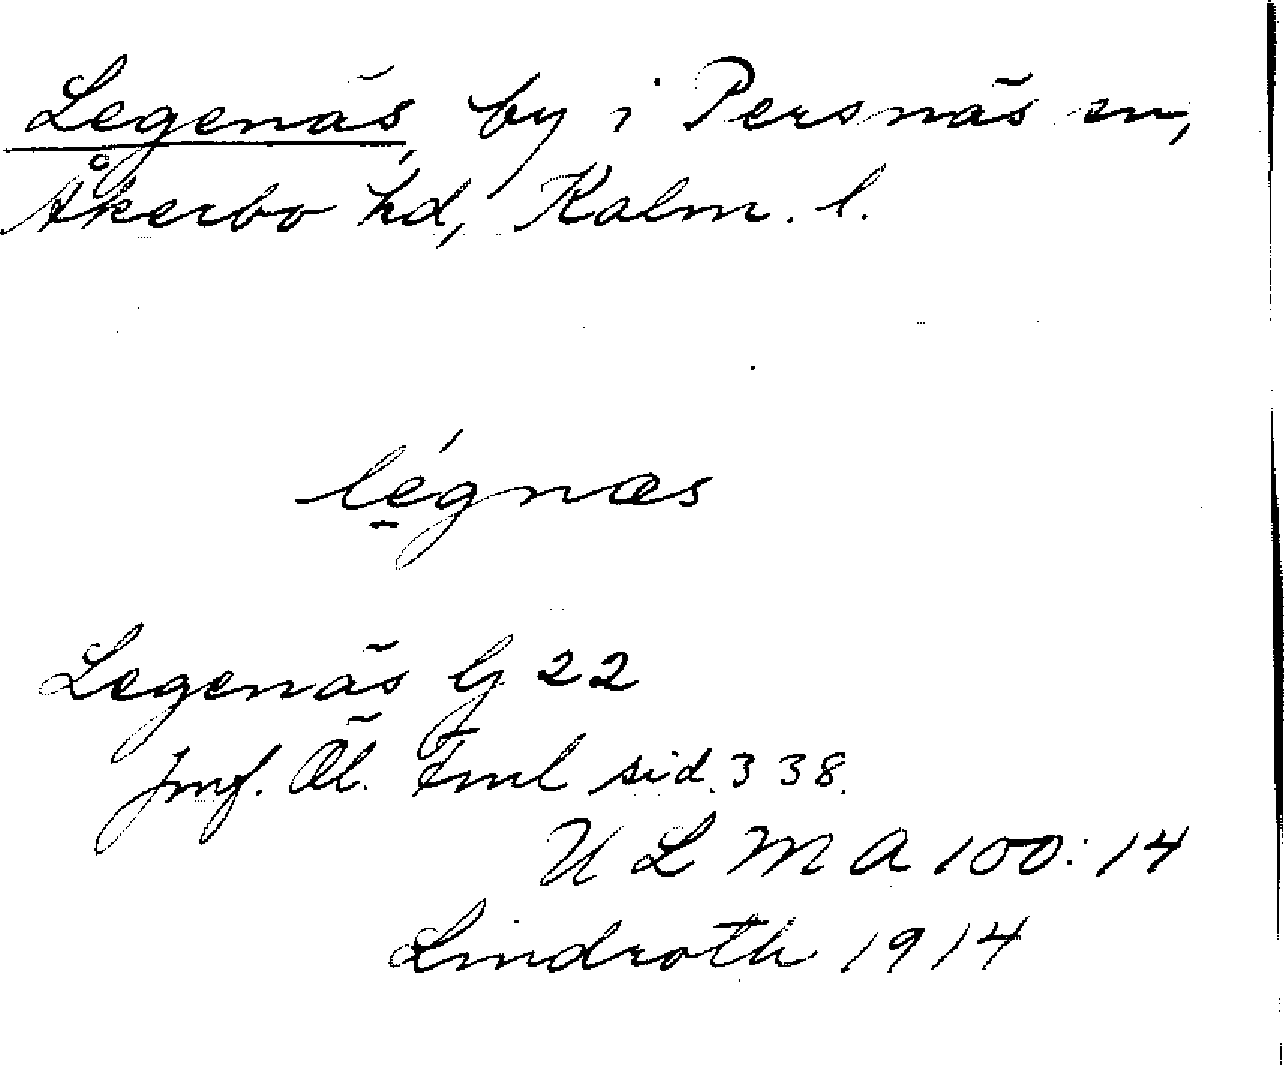 Legenäs, by i Persnäs sn,
Åkerbo hd, Kalm. l.
légnæs
Legenäs G 22
Jmf. Öl. Fml sid. 338.
U L M A 100:14
Lindroth 1914